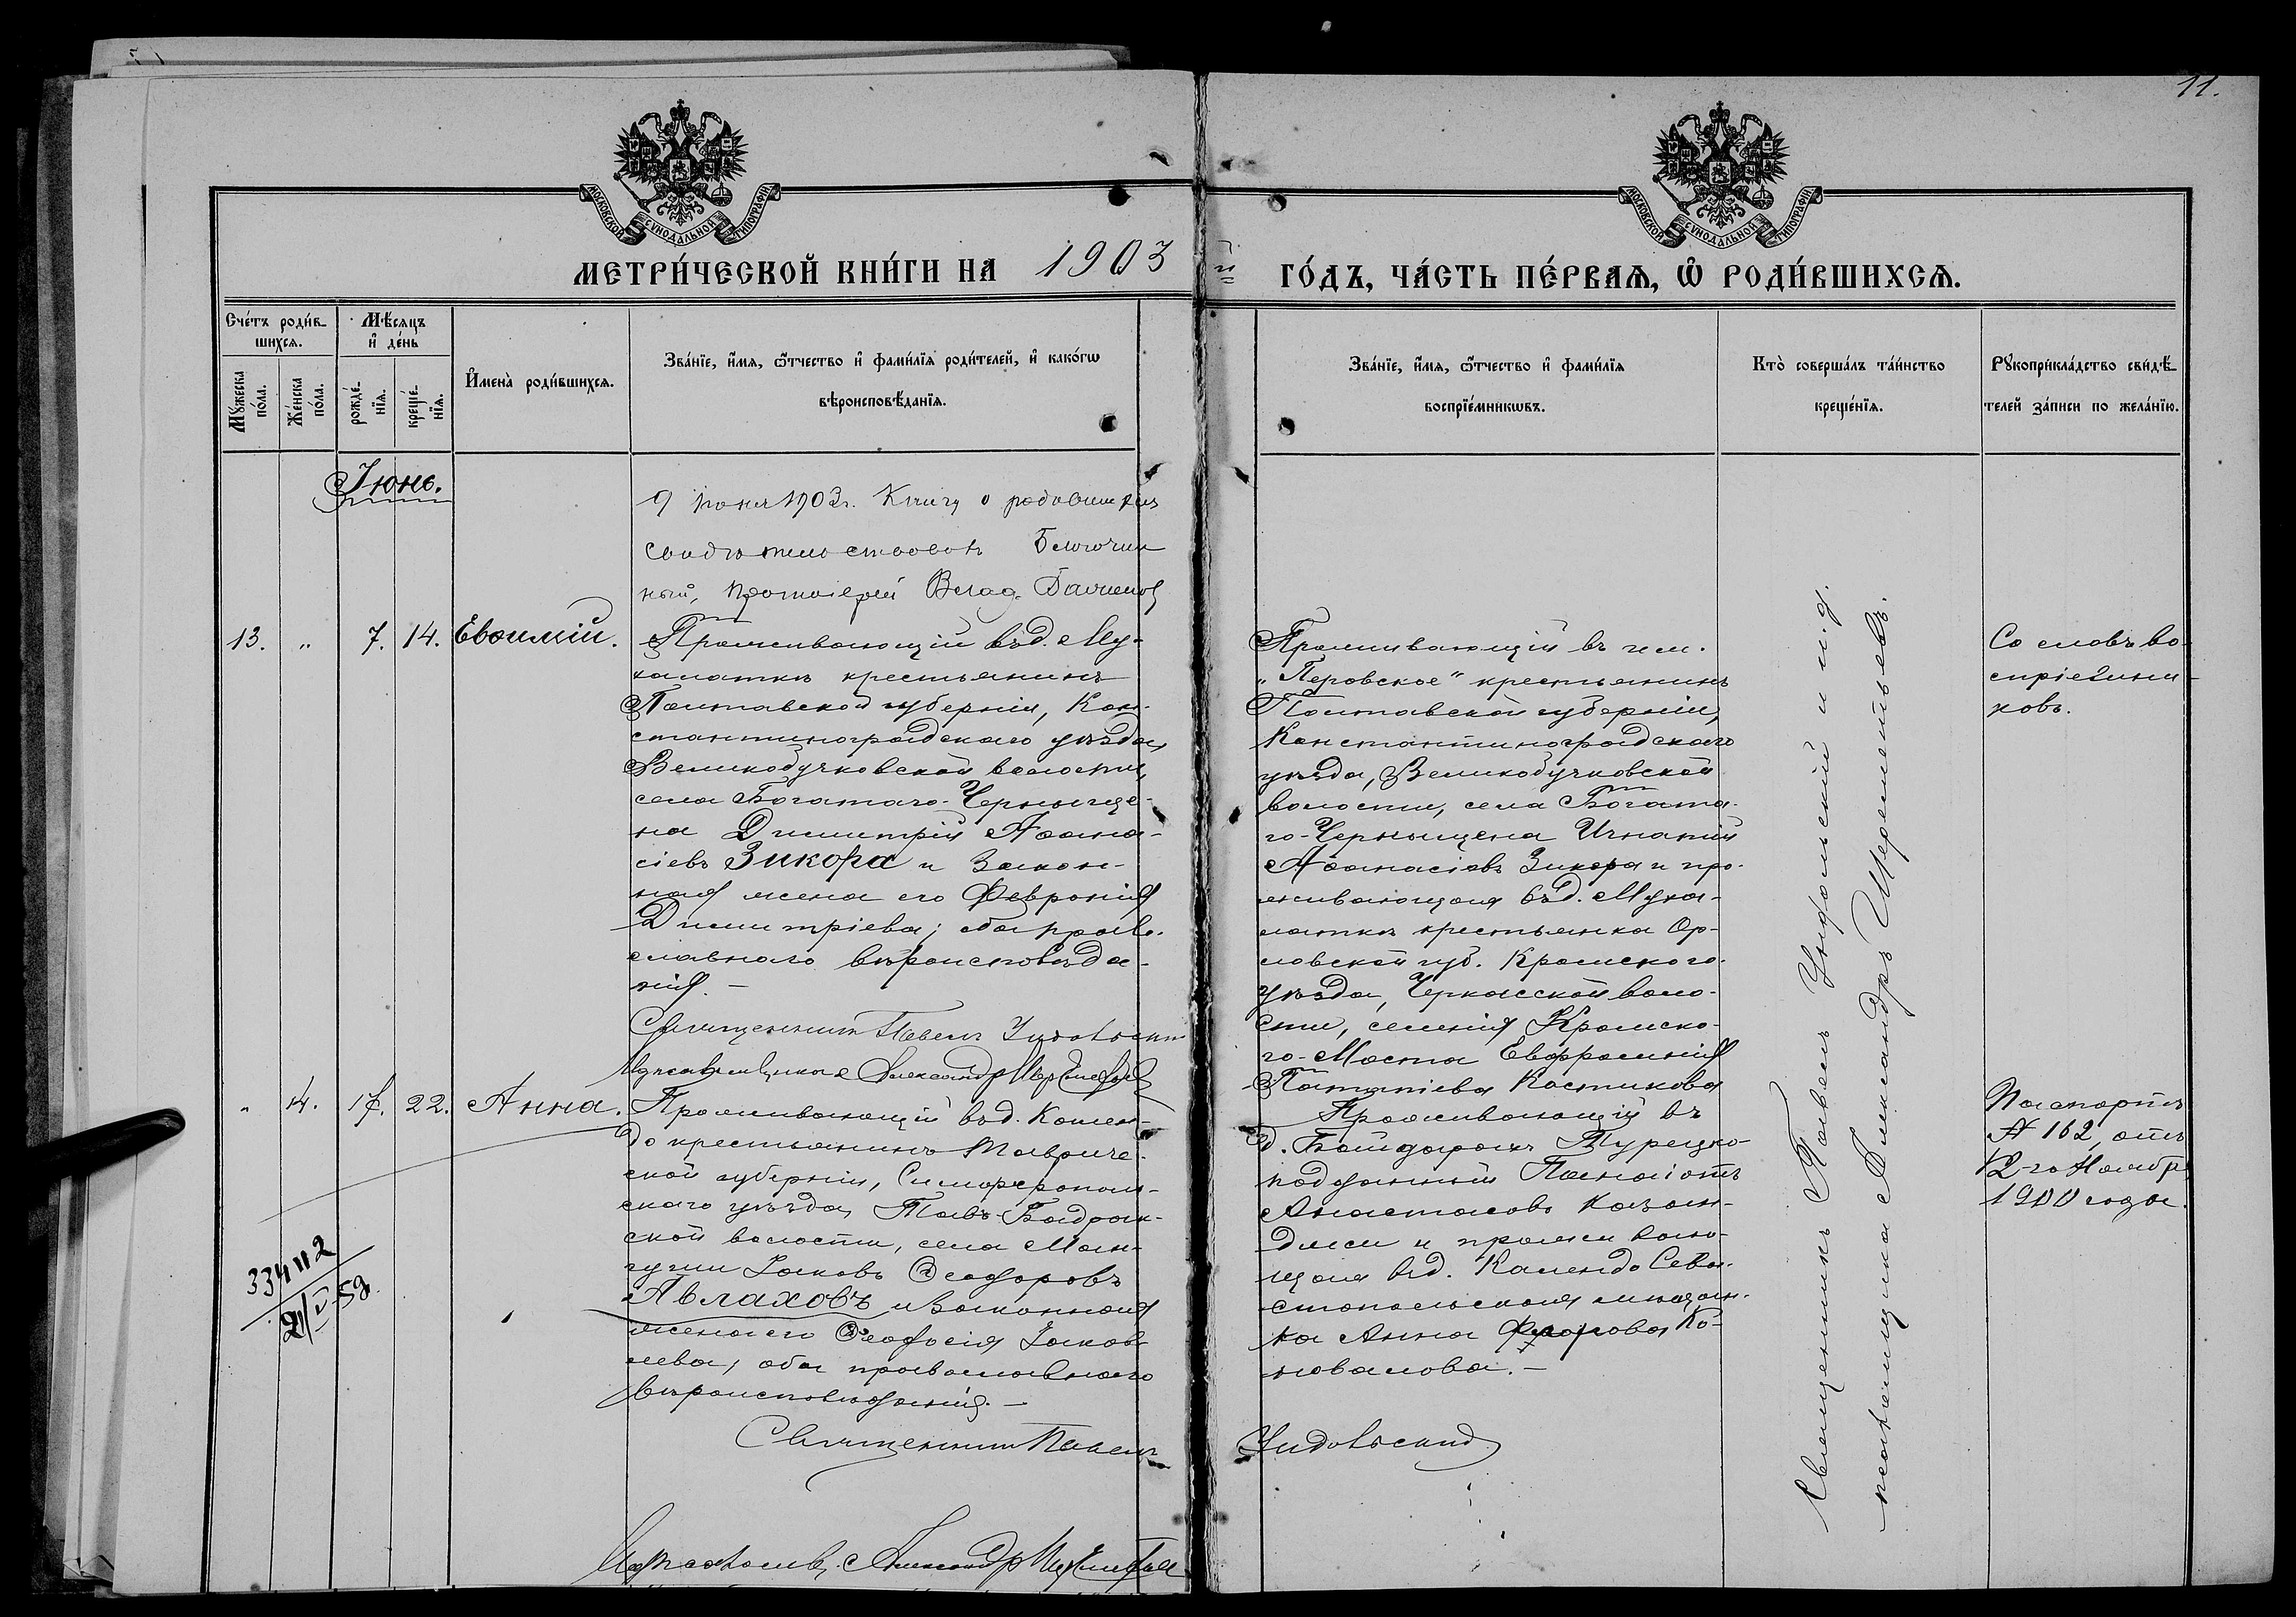 11.
МОСКОВСКОЙ СѴНОДАЛЬНОЙ ТИПОГРАФІИ
МОСКОВСКОЙ СѴНОДАЛЬНОЙ ТИПОГРАФІИ
МЕТРИ́ЧЕСКОЙ КНИ́ГИ НА 1903 й ГО́ДЪ, ЧА́СТЬ ПЕ́РВАѦ, Ѡ҆ РОДИ́ВШИХСѦ.
Сче́тъ роди́в-
шихсѧ.
Мꙋжеска по́ла.
Же́нска по́ла.
Мѣ́сѧцъ
и҆ де́нь
рожде́-
нїѧ.
креще́-
нїѧ.
И҆мена̀ роди́вшихсѧ.
Зва́нїе, и҆́мѧ, ѻ҆́тчество и҆ фами́лїѧ роди́телей, и҆ како́гѡ
вѣроисповѣ́данїѧ.
Зва́нїе, и҆́мѧ, ѻ҆́тчество и҆ фами́лїѧ
воспрїе́мникѡвъ.
Кто̀ соверша́лъ та́инство
креще́нїѧ.
Рꙋкоприкла́дство свидѣ́-
телей за́писи по жела́нїю.
Іюнь.
9 іюня 1903 г. Книгу о родившихся
свидѣтельствовалъ Благочин
ный, Протоіерей Влад.
13. " 7. 14. Евѳимій.
Проживающій въ д. Му-
халаткѣ крестьянинъ
Полтавской губерніи, Кон-
стантиноградскаго уѣзда,
Великобучковской волости,
села Богатаго-Черныще-
на Димитрій Аѳана-
сіевъ Зикора и закон-
ная жена его Февронія
Димитріева; оба прав.
славнаго вѣроисповѣда-
нія. –
Священникъ Павелъ Ундольскій
Александръ
Проживающій въ им.
"Перовское" крестьянинъ
Полтавской губерніи,
Константиноградскаго
уѣзда, Великобучковской
волости, села Богата-
го-Черныщена Игнатій
Аѳанасіевъ Зикора и про-
живающая въ д. Муха-
латкѣ крестьянка Ор-
ловской губ. Кромского
уѣзда, Черкасской воло-
сти, селенія Кромско-
го-Моста Евфросинія
Потапіева Костикова
Со словъ во-
спріемни-
ковъ.
Священникъ Павелъ Ундольскій и и. д.
псаломщика Александръ Шереметьевъ.
" 4. 17. 22. Анна.
Проживающій въ д. Кокен-
до крестьянинъ Тавриче-
ской губерніи, Симферополь-
скаго уѣзда, Тавъ-Бадрак-
ской волости, села Ман-
гуши Іаковъ Ѳеодоровъ
Авлаховъ и законная
жена его Ѳеодосія Іаков-
лева; оба православнаго
вѣроисповѣданія. –
Священникъ Павелъ Ундольскій
Александръ
Проживающій въ
д. Байдарахъ Турецко-
подданный Панаіотъ
Анастасовъ Казан-
джи и прожива ю-
щая въ д. Кокендо Сева-
стопольская мѣщан-
ка Анна Ко-
новалова. –
Паспортъ
№ 162, отъ
12-го Ноября
1900 года.